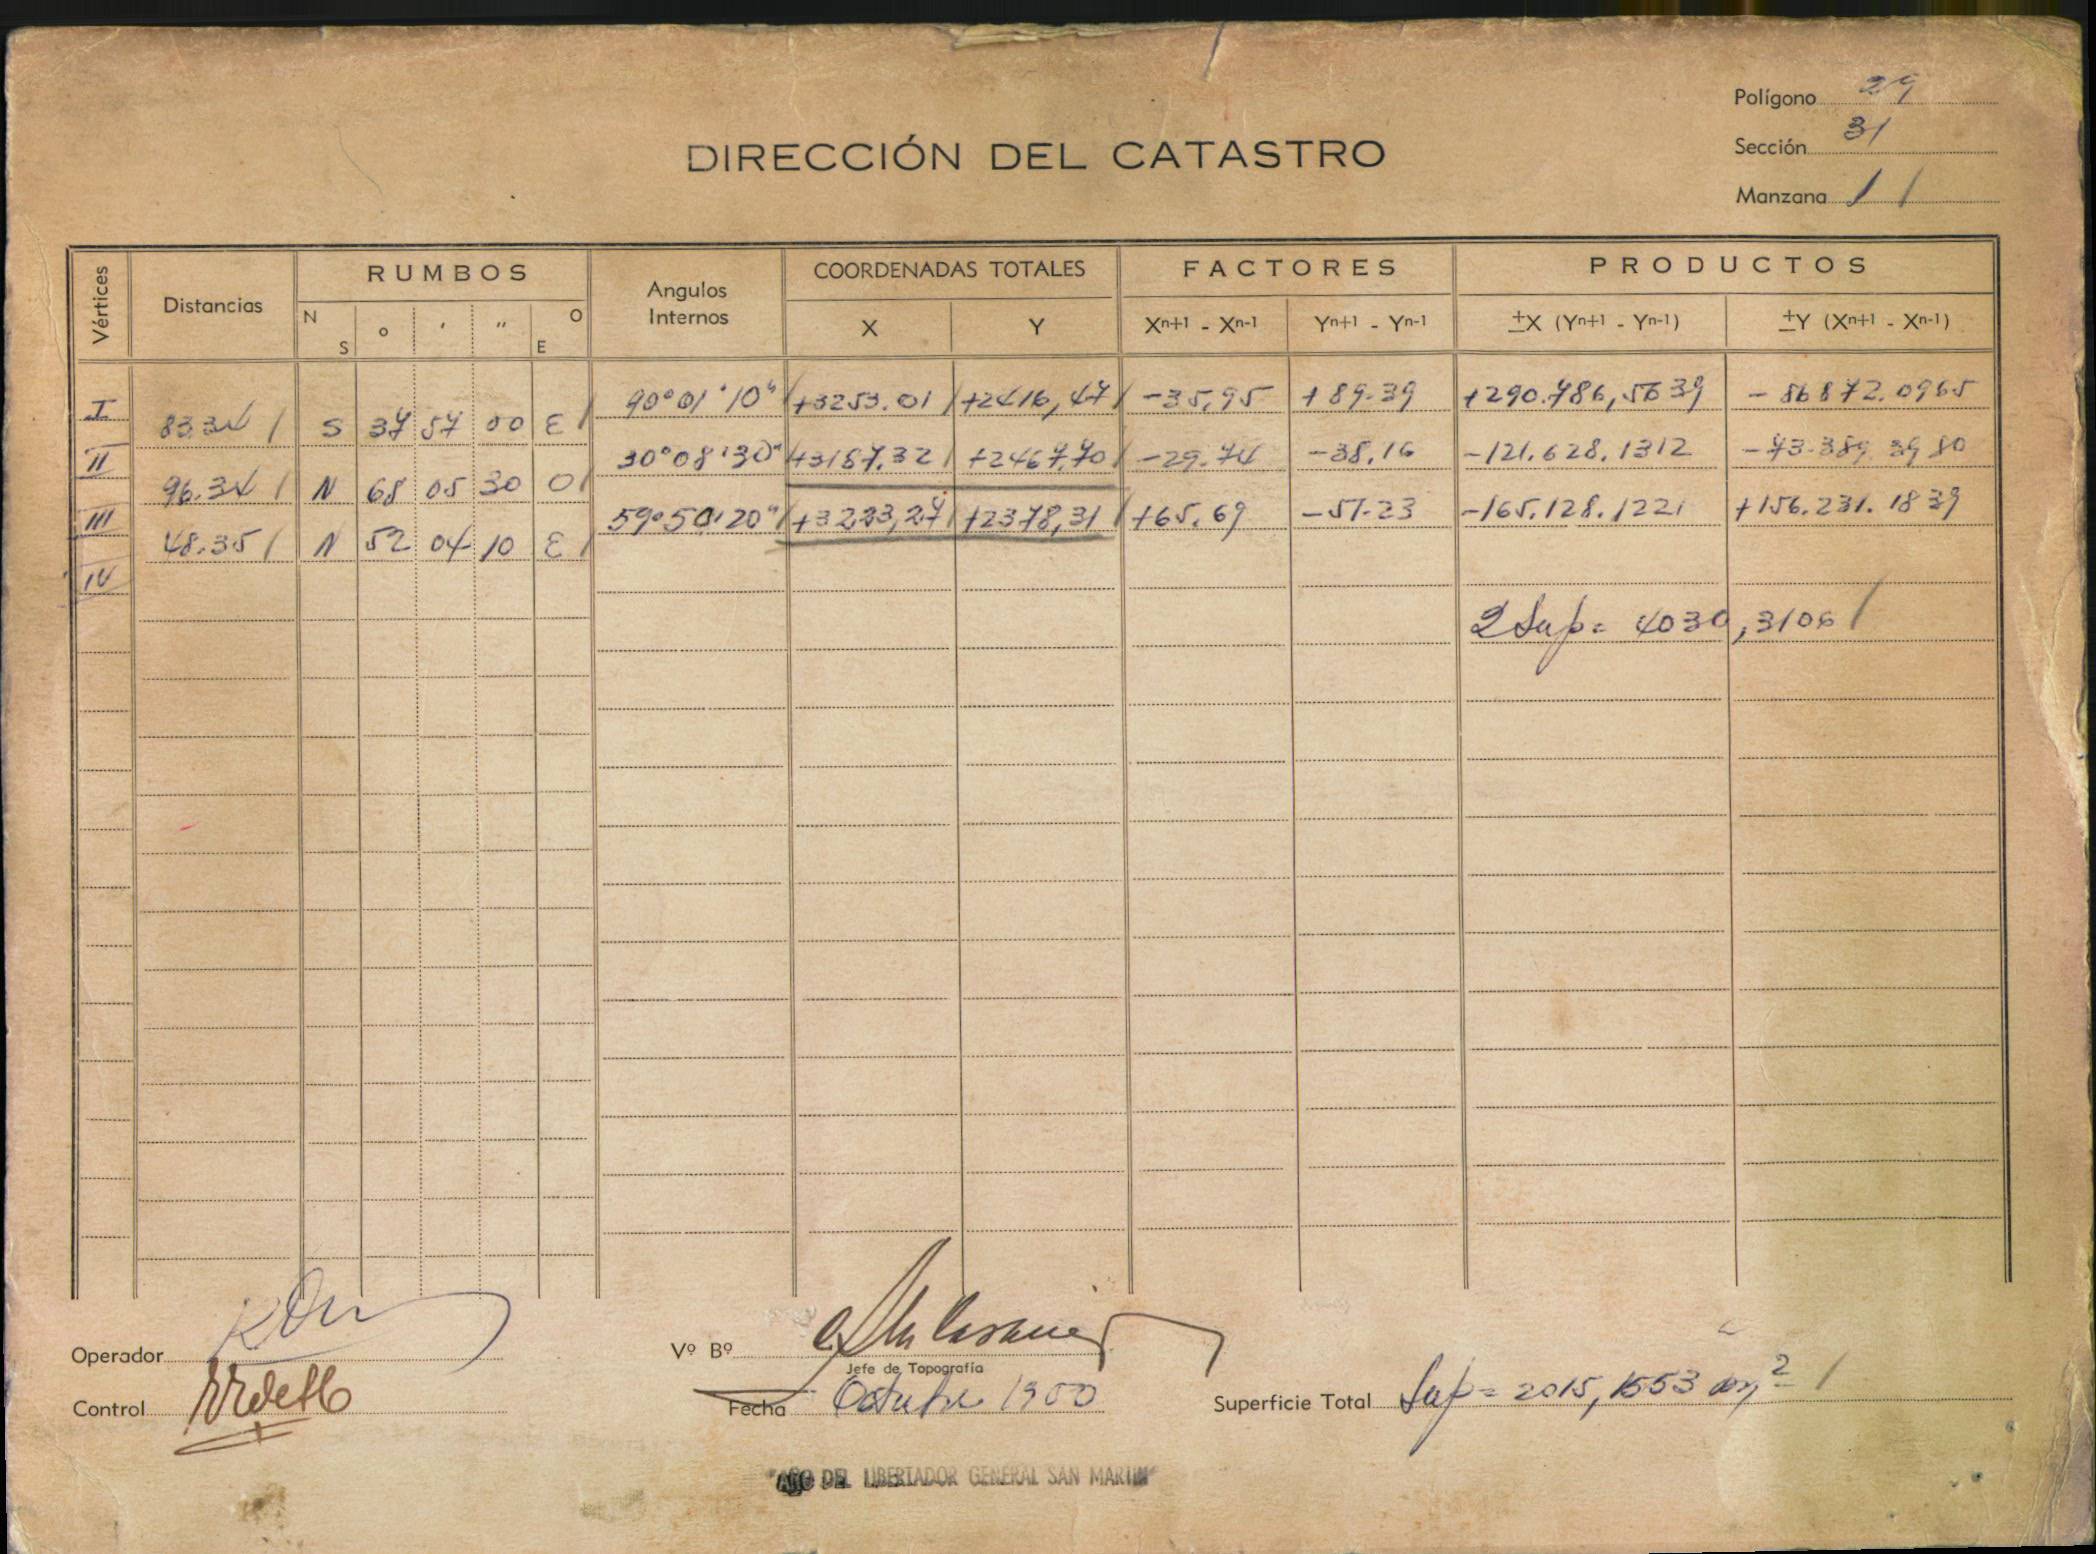 Polígono 29
Sección 31
Manzana 11
DIRECCIÓN DEL CATASTRO
Vértices Distancias RUMBOS Angulos Internos COORDENADAS TOTALES FACTORES PRODUCTOS
N S ° ' " O E X Y Xn+1 - Xn-1 Yn+1 - Yn-1 ±X (Yn+1 - Yn-1) ±Y (Xn+1 - Xn-1)
I 90°01'10" +3253.01 +2416,47 -35,95 +89.39 +290.786,5639 -86872.0965
83.34 S 37 57 00 E
II 30°08'30" +3187,32 +2467,70 -29.74 -38,16 -121.628.1312 -73.389.3980
96.34 N 68 05 30 O
III 59°50'20" +3223,27 +2378,31 +65.69 -51.23 -165.128.1221 +156.231.1839
48.35 N 52 04 10 E
IV
2 Sup = 4030,3106
Operador
Vº Bº
Jefe de Topografía
Control
Fecha Octubre 1950
Superficie Total Sup = 2015,1553 m²
"AÑO DEL LIBERTADOR GENERAL SAN MARTIN"